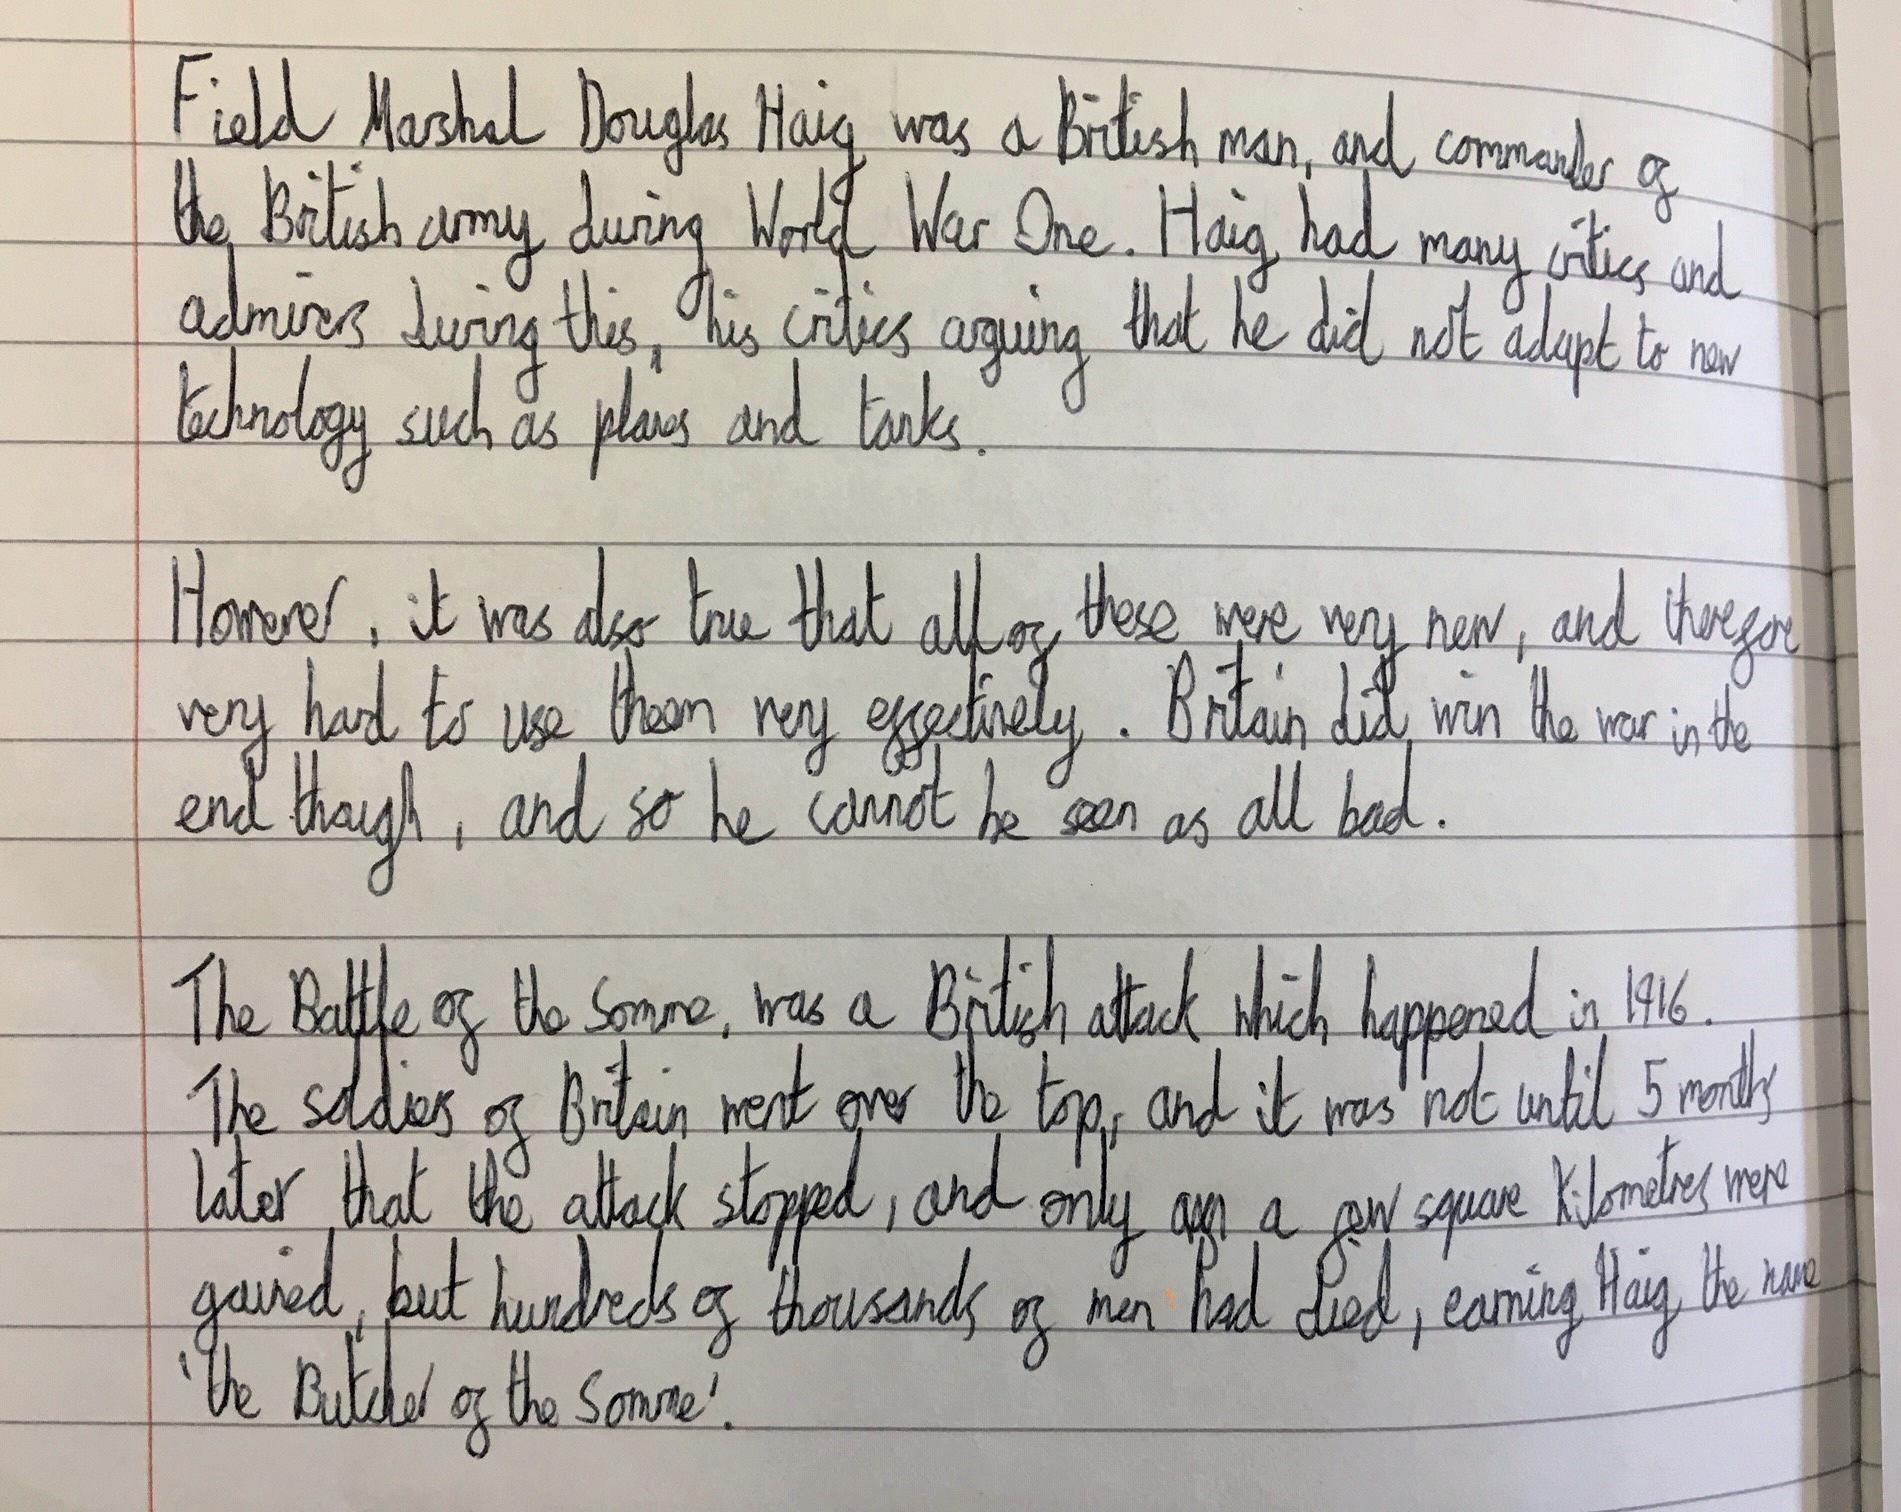 Field Marshal Douglas Haig was a British man, and commander of
the British army during World War One. Haig had many critics and
admirers during this, his critics arguing that he did not adapt to new
technology such as planes and tanks.
However, it was also true that all of these were very new, and therefore
very hard to use them very effectively. Britain did win the war in the
end though, and so he cannot be seen as all bad.
The Battle of the Somme, was a British attack which happened in 1916.
The soldiers of Britain went over the top, and it was not until 5 months
later that the attack stopped, and only a few square kilometres were
gained, but hundreds of thousands of men had died, earning Haig the name
'the Butcher of the Somme'.